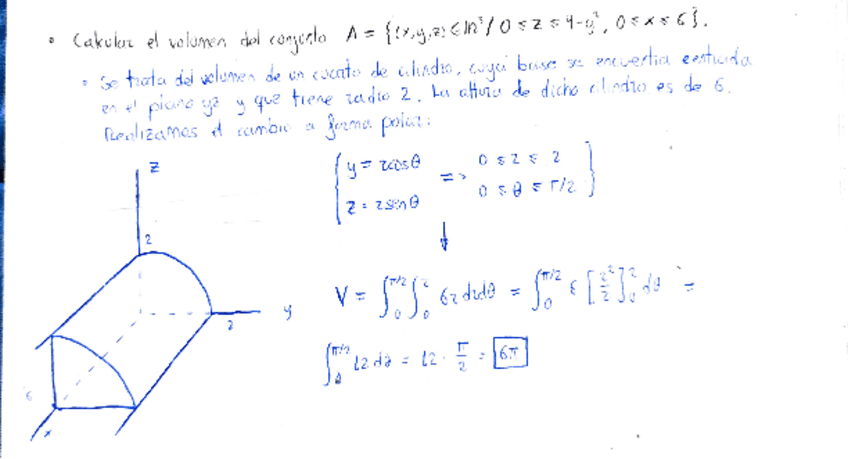 • Calcular el volumen del conjunto A = {(x,y,z) ∈ ℝ³ / 0 ≤ z ≤ 4-y², 0 ≤ x ≤ 6}.
• Se trata del volumen de un cuarto de cilindro, cuya base se encuentra centrada
en el plano yz y que tiene radio 2. La altura de dicho cilindro es de 6.
Realizamos el cambio a forma polar:
{ y = r cosθ => 0 ≤ r ≤ 2
z = r senθ 0 ≤ θ ≤ π/2 }
↓
V = ∫₀^{π/2} ∫₀² 6r dr dθ = ∫₀^{π/2} 6 [r²/2]₀² dθ =
∫₀^{π/2} 12 dθ = 12 · π/2 = 6π
z
2
y
2
6
x